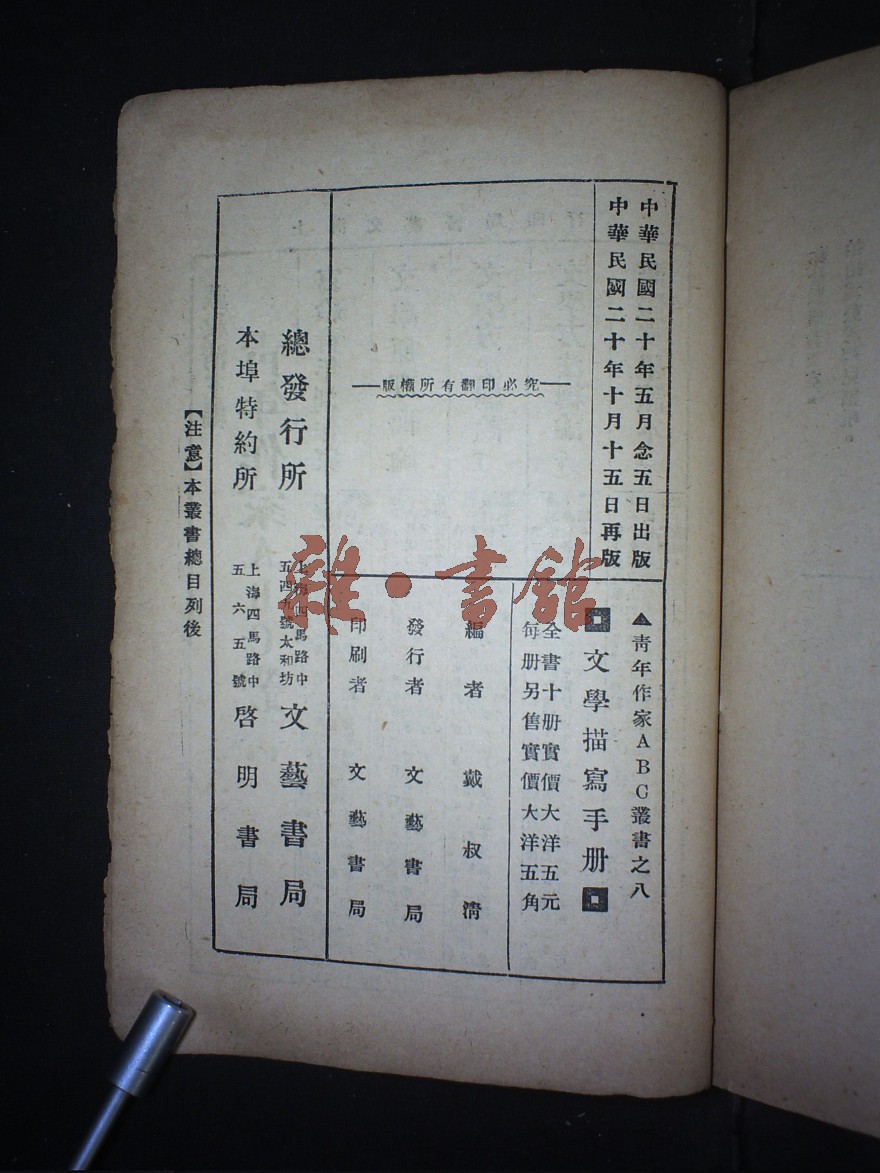 中華民國二十年五月念五日出版
中華民國二十年十月十五日再版
版權所有翻印必究
▲青年作家ABC叢書之八
文學描寫手册
全書十册實價大洋五元
每册另售實價大洋五角
編者 戴叔清
發行者 文藝書局
印刷者 文藝書局
總發行所 上海四馬路中五四九號太和坊 文藝書局
本埠特約所 上海四馬路中五六五號 啓明書局
【注意】本叢書總目列後
雜·書館